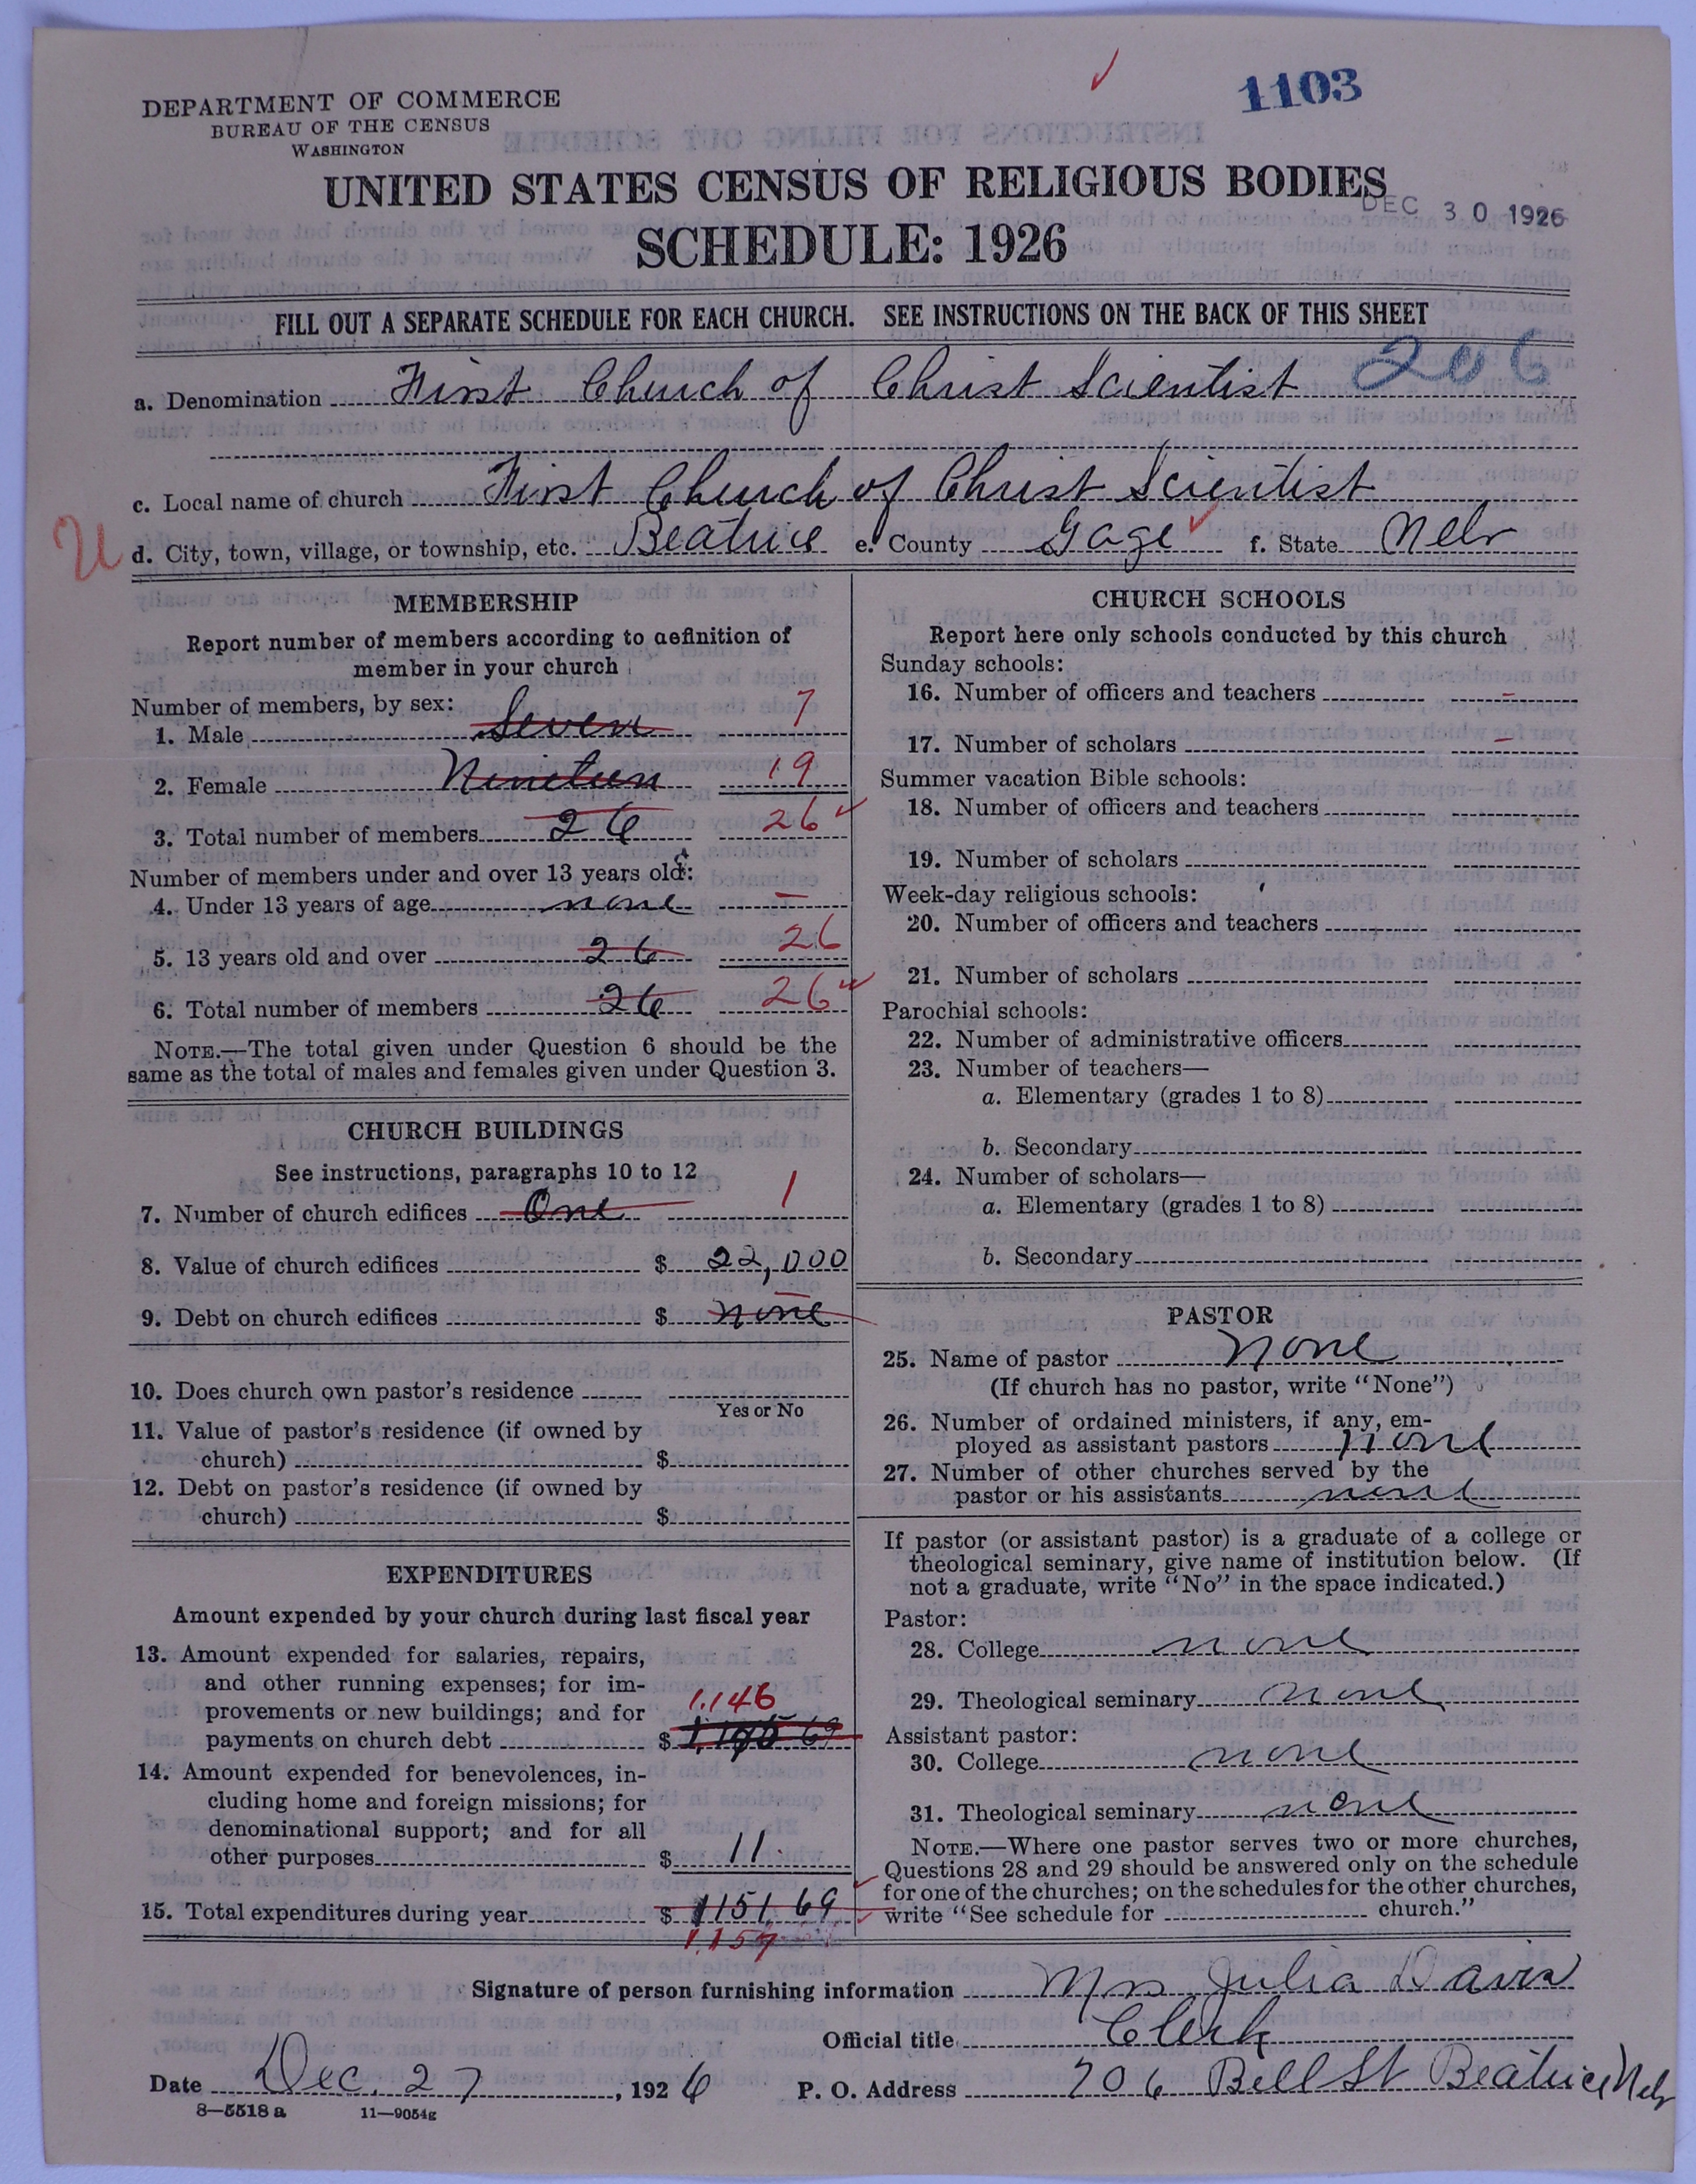 1103
DEPARTMENT OF COMMERCE
BUREAU OF THE CENSUS
WASHINGTON
UNITED STATES CENSUS OF RELIGIOUS BODIES
DEC 30 1926
SCHEDULE: 1926
FILL OUT A SEPARATE SCHEDULE FOR EACH CHURCH. SEE INSTRUCTIONS ON THE BACK OF THIS SHEET
206
a. Denomination First Church of Christ Scientist
c. Local name of church First Church of Christ Scientist
U d. City, town, village, or township, etc. Beatrice e. County Gage f. State Nebr
MEMBERSHIP
Report number of members according to definition of
member in your church
Number of members, by sex:
1. Male Seven 7
2. Female Nineteen 19
3. Total number of members 26 26
Number of members under and over 13 years old:
4. Under 13 years of age none –
5. 13 years old and over 26 26
6. Total number of members 26 26
NOTE.—The total given under Question 6 should be the
same as the total of males and females given under Question 3.
CHURCH BUILDINGS
See instructions, paragraphs 10 to 12
7. Number of church edifices One 1
8. Value of church edifices $ 22,000
9. Debt on church edifices $ none
10. Does church own pastor's residence
Yes or No
11. Value of pastor's residence (if owned by
church) $
12. Debt on pastor's residence (if owned by
church) $
EXPENDITURES
Amount expended by your church during last fiscal year
13. Amount expended for salaries, repairs,
and other running expenses; for im-
provements or new buildings; and for
1,146
payments on church debt $
14. Amount expended for benevolences, in-
cluding home and foreign missions; for
denominational support; and for all
other purposes $ 11
15. Total expenditures during year $ 1151,69
1,157
CHURCH SCHOOLS
Report here only schools conducted by this church
Sunday schools:
16. Number of officers and teachers –
17. Number of scholars –
Summer vacation Bible schools:
18. Number of officers and teachers
19. Number of scholars
Week-day religious schools:
20. Number of officers and teachers
21. Number of scholars
Parochial schools:
22. Number of administrative officers
23. Number of teachers—
a. Elementary (grades 1 to 8)
b. Secondary
24. Number of scholars—
a. Elementary (grades 1 to 8)
b. Secondary
PASTOR
25. Name of pastor None
(If church has no pastor, write "None")
26. Number of ordained ministers, if any, em-
ployed as assistant pastors none
27. Number of other churches served by the
pastor or his assistants none
If pastor (or assistant pastor) is a graduate of a college or
theological seminary, give name of institution below. (If
not a graduate, write "No" in the space indicated.)
Pastor:
28. College none
29. Theological seminary none
Assistant pastor:
30. College none
31. Theological seminary none
NOTE.—Where one pastor serves two or more churches,
Questions 28 and 29 should be answered only on the schedule
for one of the churches; on the schedules for the other churches,
write "See schedule for church."
Signature of person furnishing information Mrs Julia Davis
Official title Clerk
Date Dec. 27, 1926 P. O. Address 706 Bell St Beatrice Nebr
8—5518 a 11—9054g